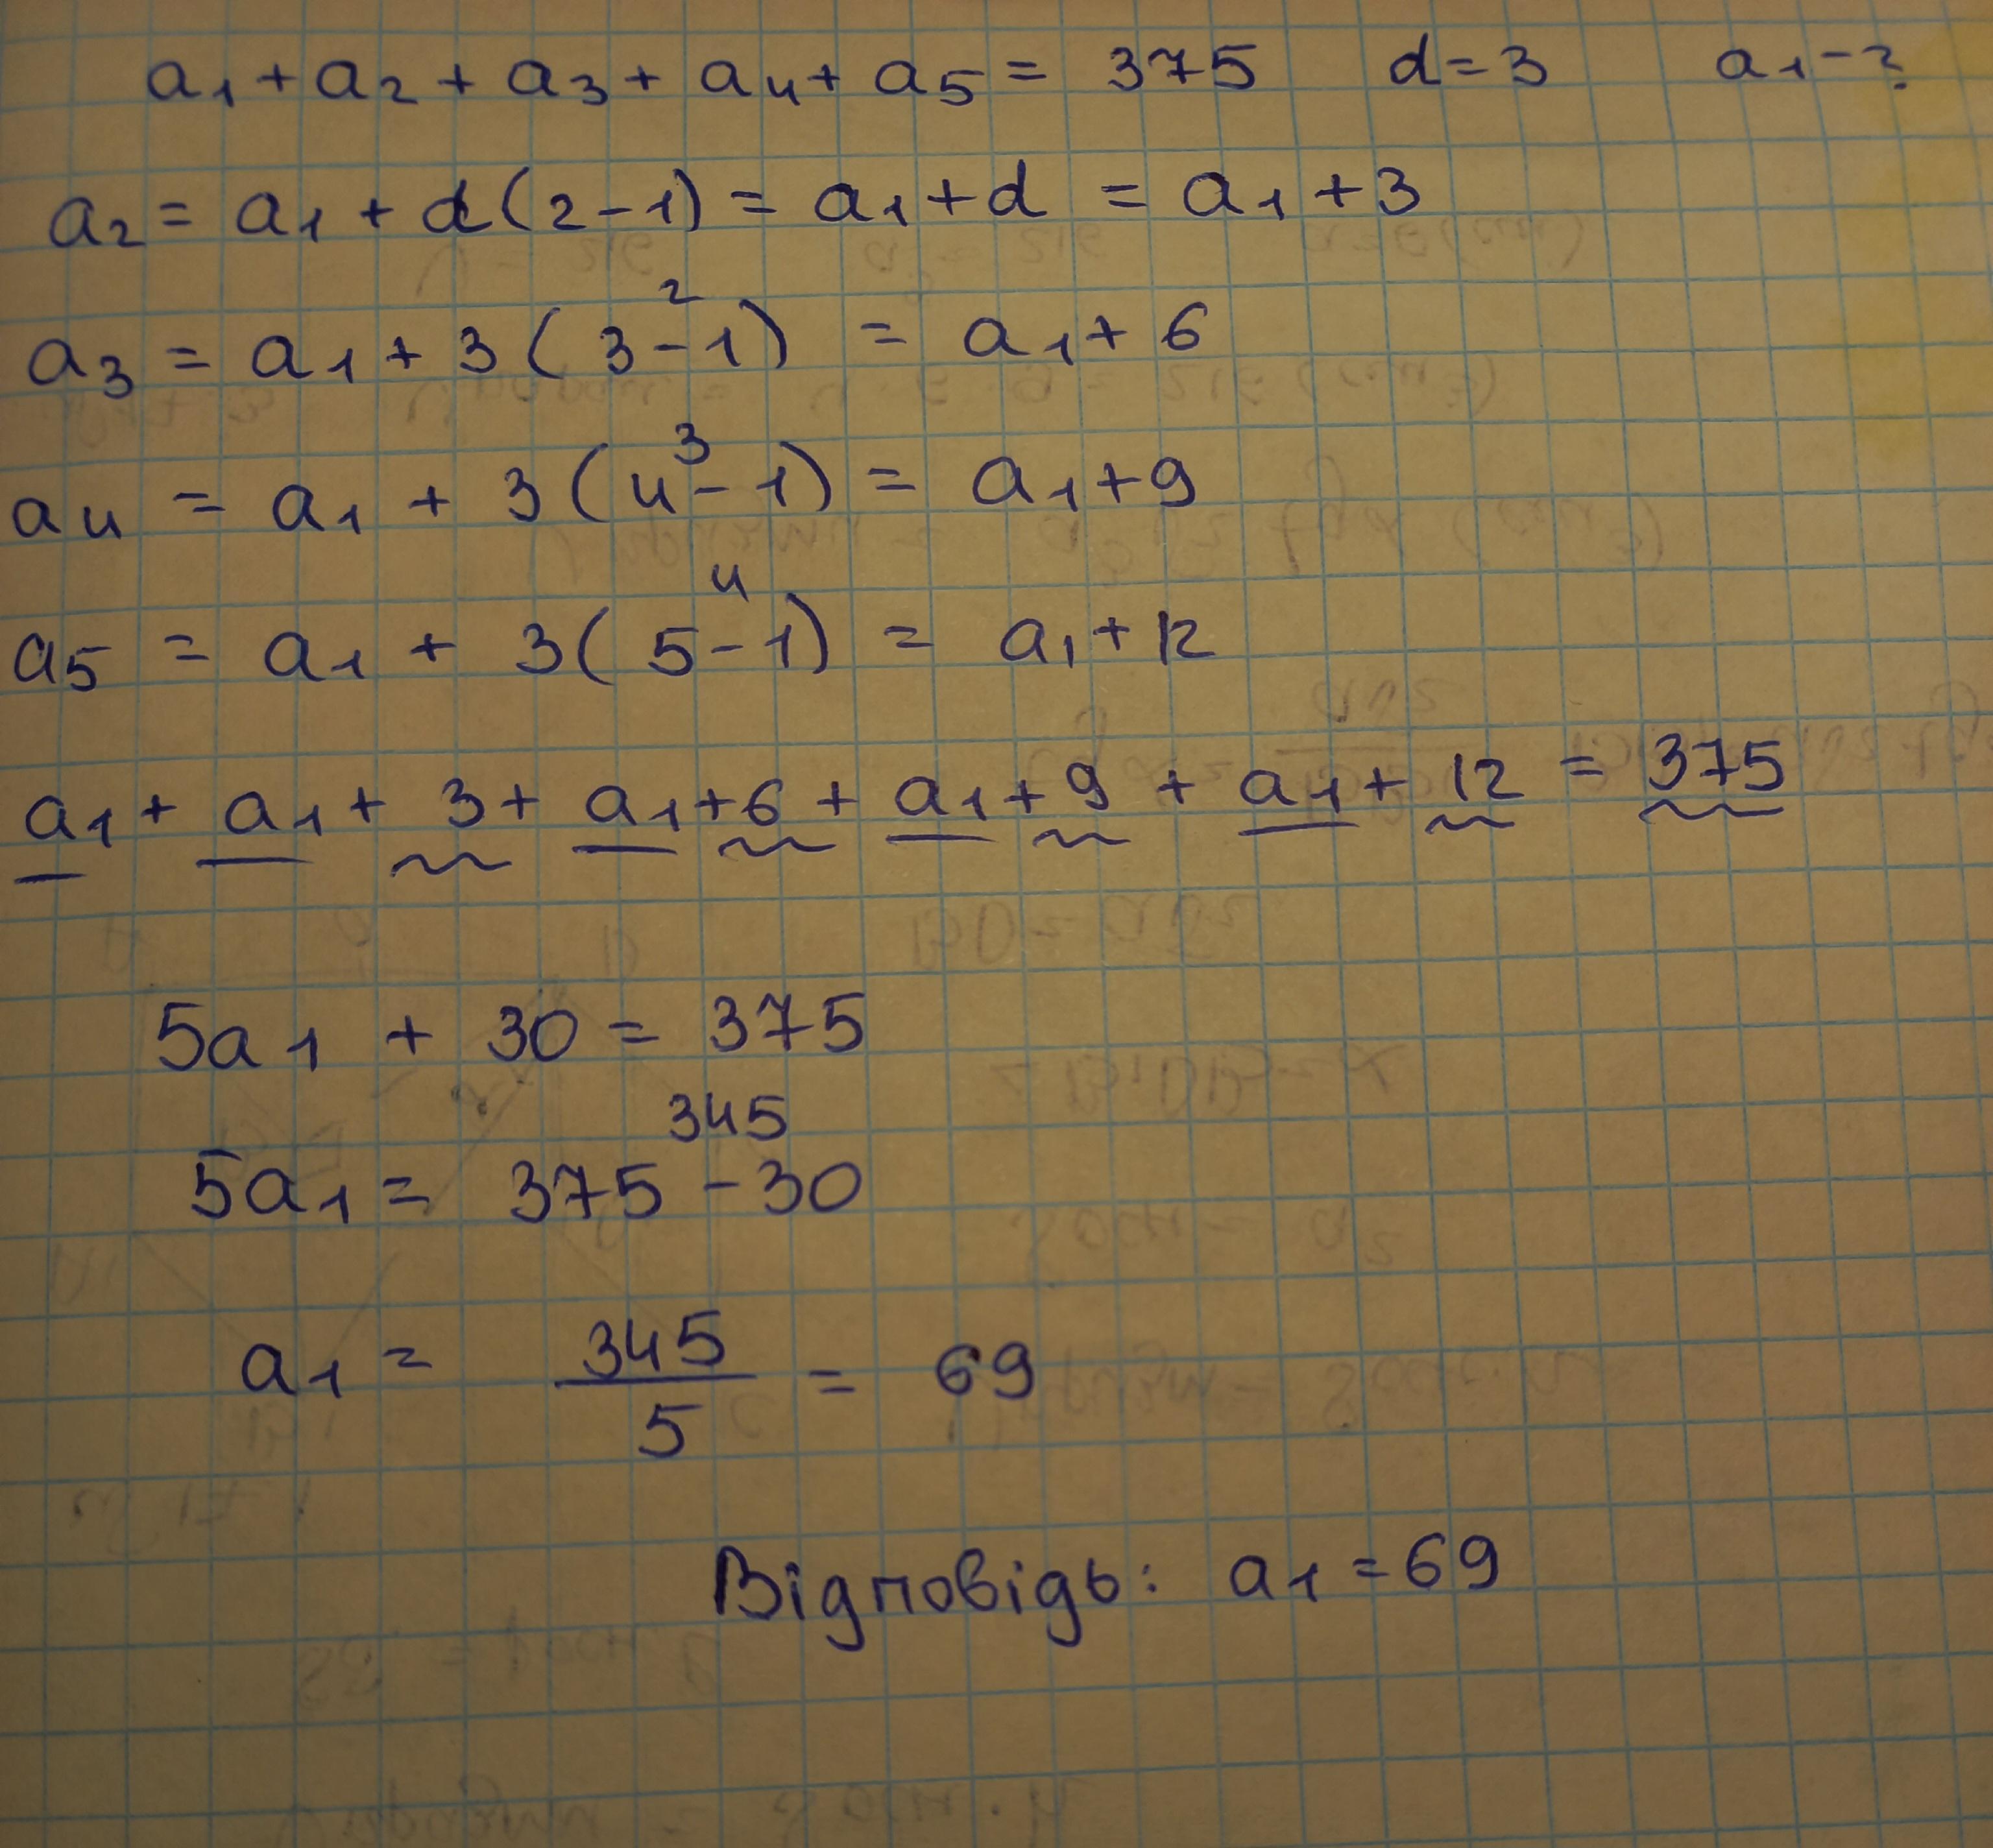 a1 + a2 + a3 + a4 + a5 = 375 d = 3 a1 - ?
a2 = a1 + d(2-1) = a1 + d = a1 + 3
2
a3 = a1 + 3(3-1) = a1 + 6
3
a4 = a1 + 3(4-1) = a1 + 9
4
a5 = a1 + 3(5-1) = a1 + 12
a1 + a1 + 3 + a1 + 6 + a1 + 9 + a1 + 12 = 375
5a1 + 30 = 375
345
5a1 = 375 - 30
a1 = 345/5 = 69
Відповідь: a1 = 69